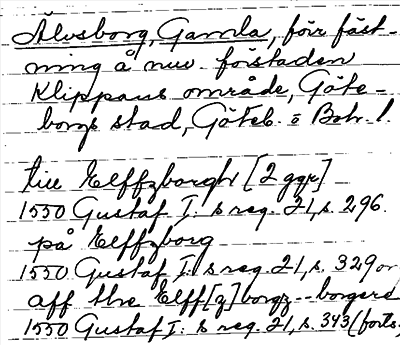 Älvsborg, Gamla, förr fäst-
ning å nuv. förstaden
Klippans område, Göte-
borgs stad, Göteb. o Boh. l.
till Elffzborgh [2 ggr]
1550 Gustaf I: s reg. 21, s. 296.
på Elffzborg
1550 Gustaf I: s reg. 21, s. 329 or
aff the Elff[z]borgz--borgere
1550 Gustaf I: s reg. 21, s. 343 (forts.